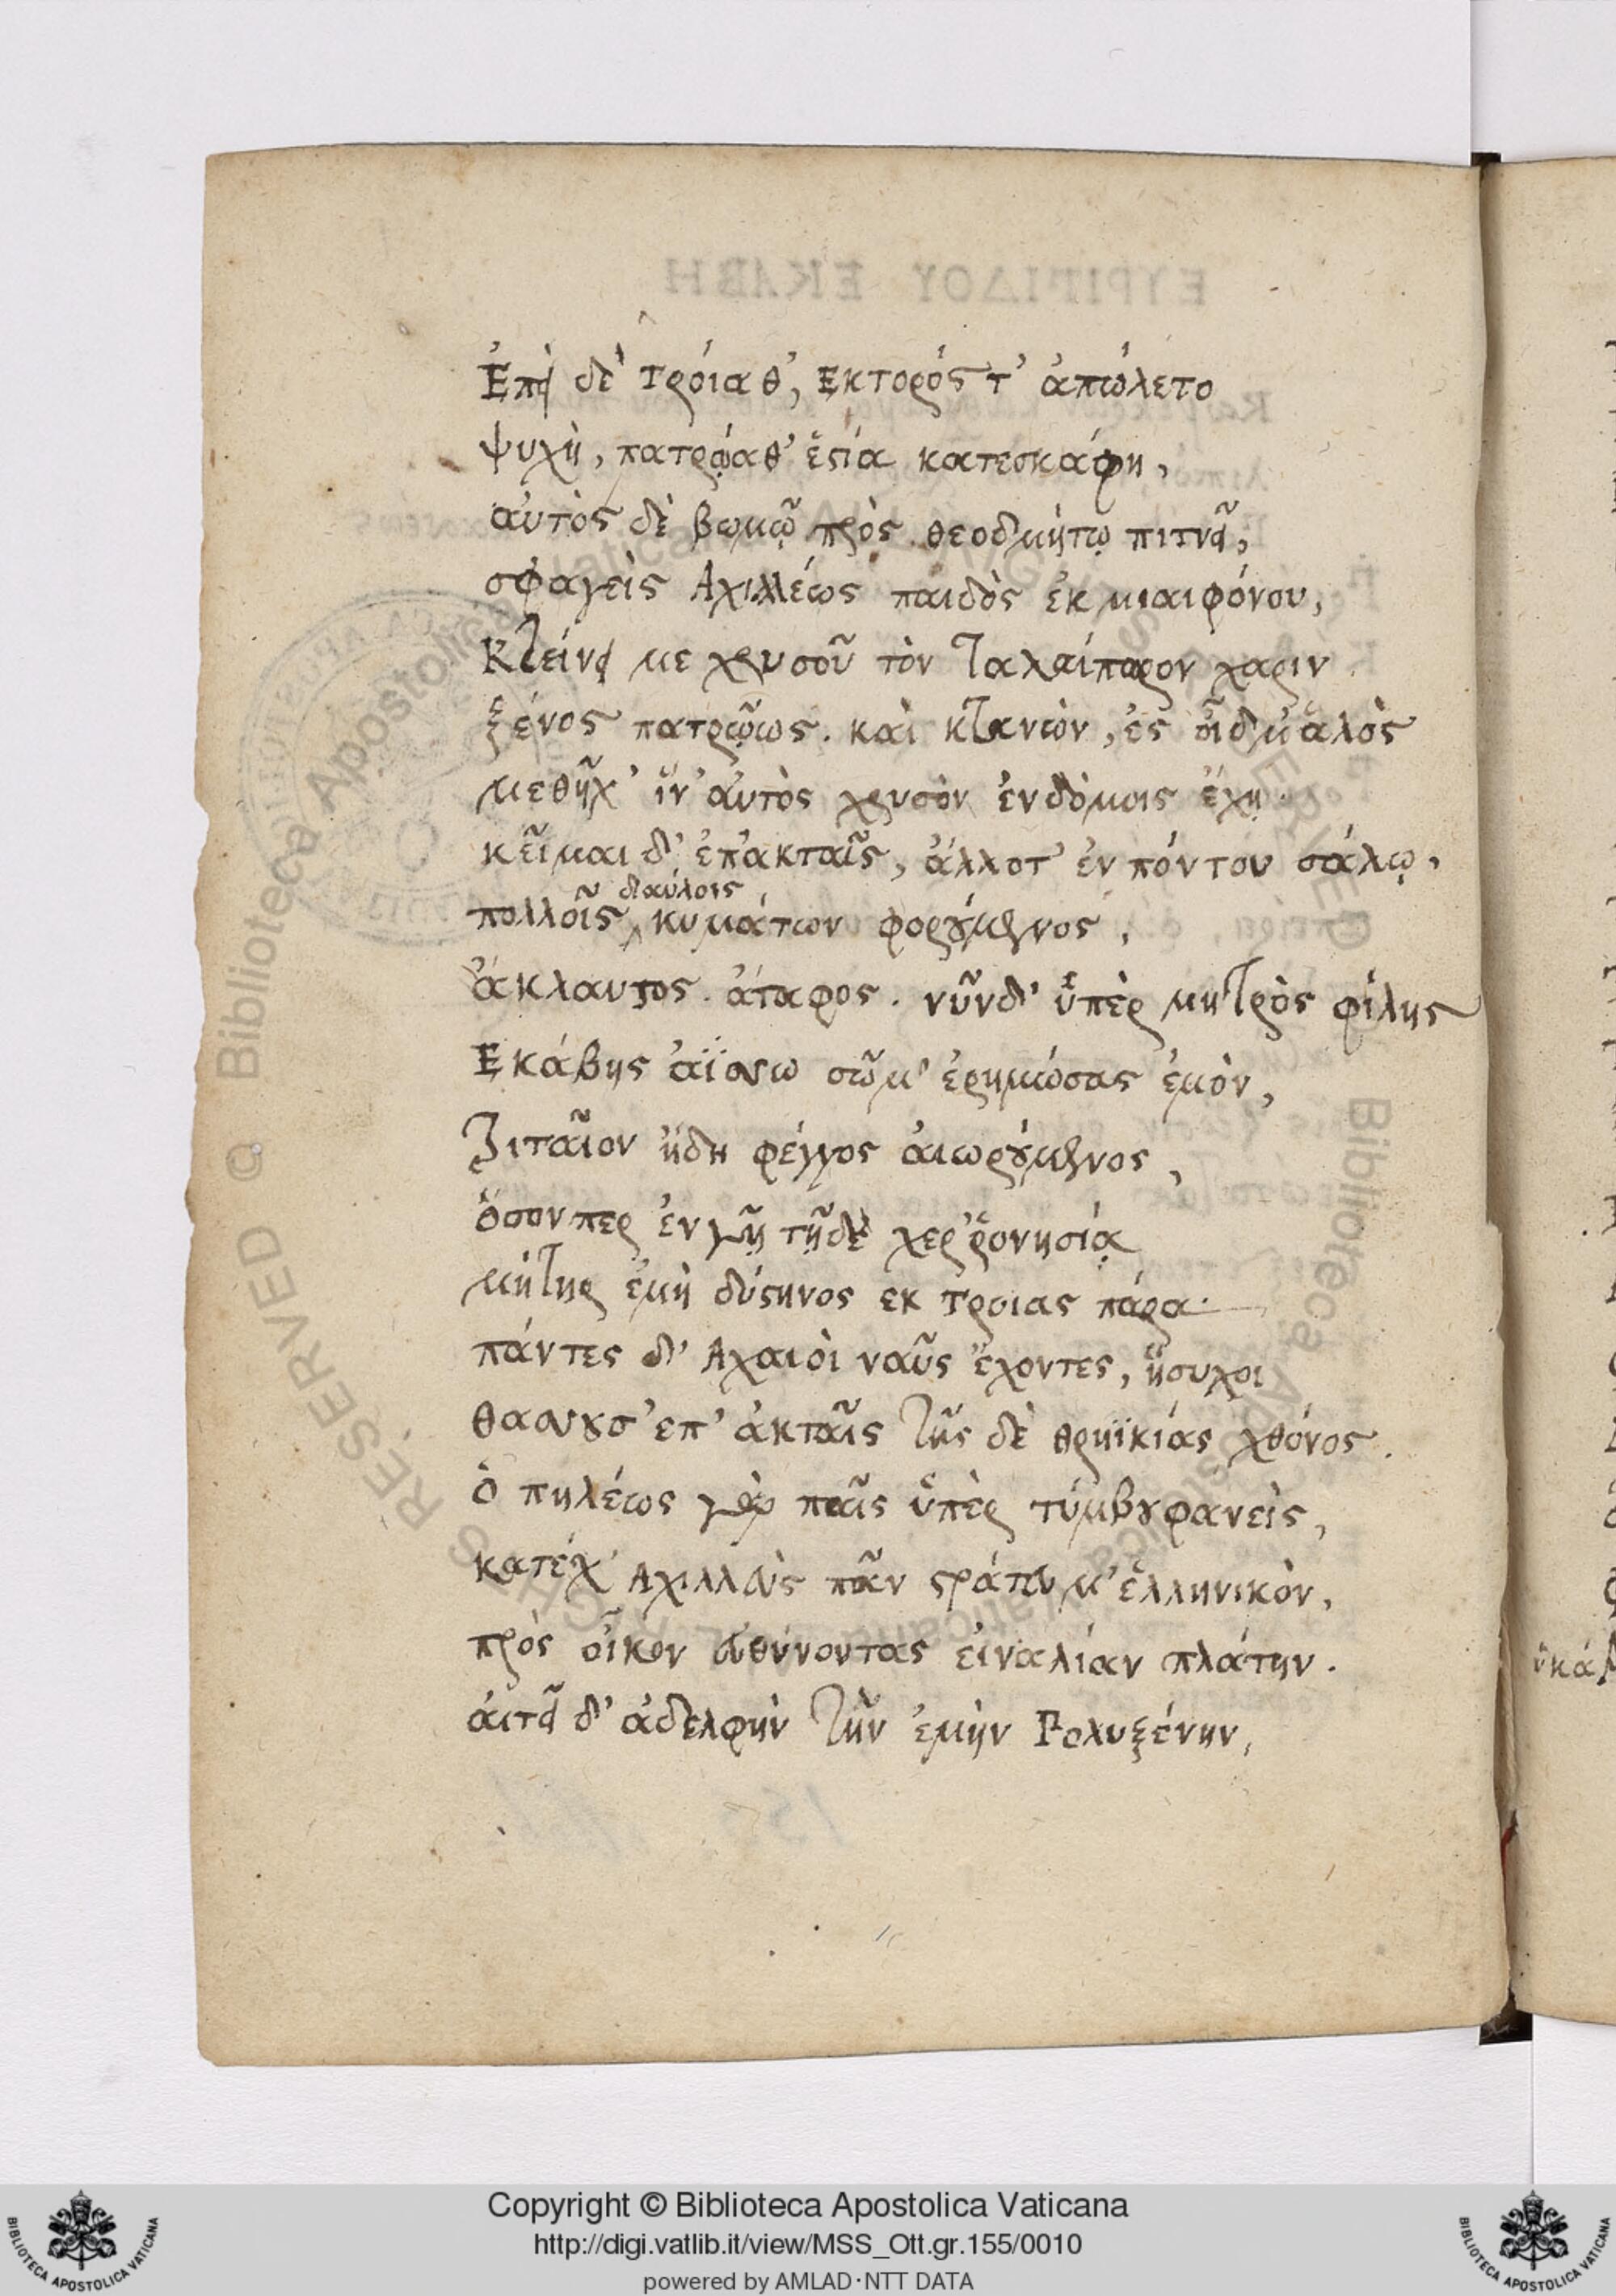 Ἐπεὶ δὲ Τροία θ’, Εκτορός τ’ ἀπώλετο
ψυχὴ, πατρῴα θ’ ἑστία κατεσκάφη,
αὐτὸς δὲ βωμῷ πρὸς θεοδμήτῳ πιτνεῖ,
σφαγεὶς Αχιλλέως παιδὸς ἐκ μιαιφόνου,
Κτείνει με χρυσοῦ τὸν ταλαίπωρον χαριν
ξένος πατρῷως. καὶ κτανὼν, ἐς οἶδμ’ ἁλὸς
μεθῆχ’ ἵν’ αὐτὸς χρυσὸν ἐν δόμοις ἔχῃ.
κεῖμαι δ’ ἐπ’ ἀκταῖς, ἄλλοτ’ ἐν πόντου σάλῳ,
πολλοῖς διαύλοις κυμάτων φορούμενος,
ἄκλαυτος. ἄταφος. νῦν δ’ ὑπὲρ μητρὸς φίλης
Εκάβης ἀΐσσω σῶμ’ ἐρημώσας ἐμὸν,
Τριταῖον ἤδη φέγγος αἰωρούμενος,
Ὅσον περ ἐν γῇ τῇδε χερρονησίᾳ
μήτηρ ἐμὴ δύστηνος εκ Τροιας πάρα.
πάντες δ’ Αχαιοὶ ναῦς ἔχοντες, ἥσυχοι
θασσουσ’ επ’ ἀκταῖς τῆς δὲ θρηϊκίας χθόνος.
ὁ πηλέως γὰρ παῖς ὑπὲρ τύμβου φανεὶς,
κατέχ’ Αχιλλεὺς πᾶν στράτευμ’ ἑλληνικὸν,
πρὸς οἶκον εὐθύνοντας εἰναλίαν πλάτην.
αἰτεῖ δ’ ἀδελφὴν τὴν ἐμὴν Πολυξένην,
Copyright © Biblioteca Apostolica Vaticana
http://digi.vatlib.it/view/MSS_Ott.gr.155/0010
powered by AMLAD·NTT DATA